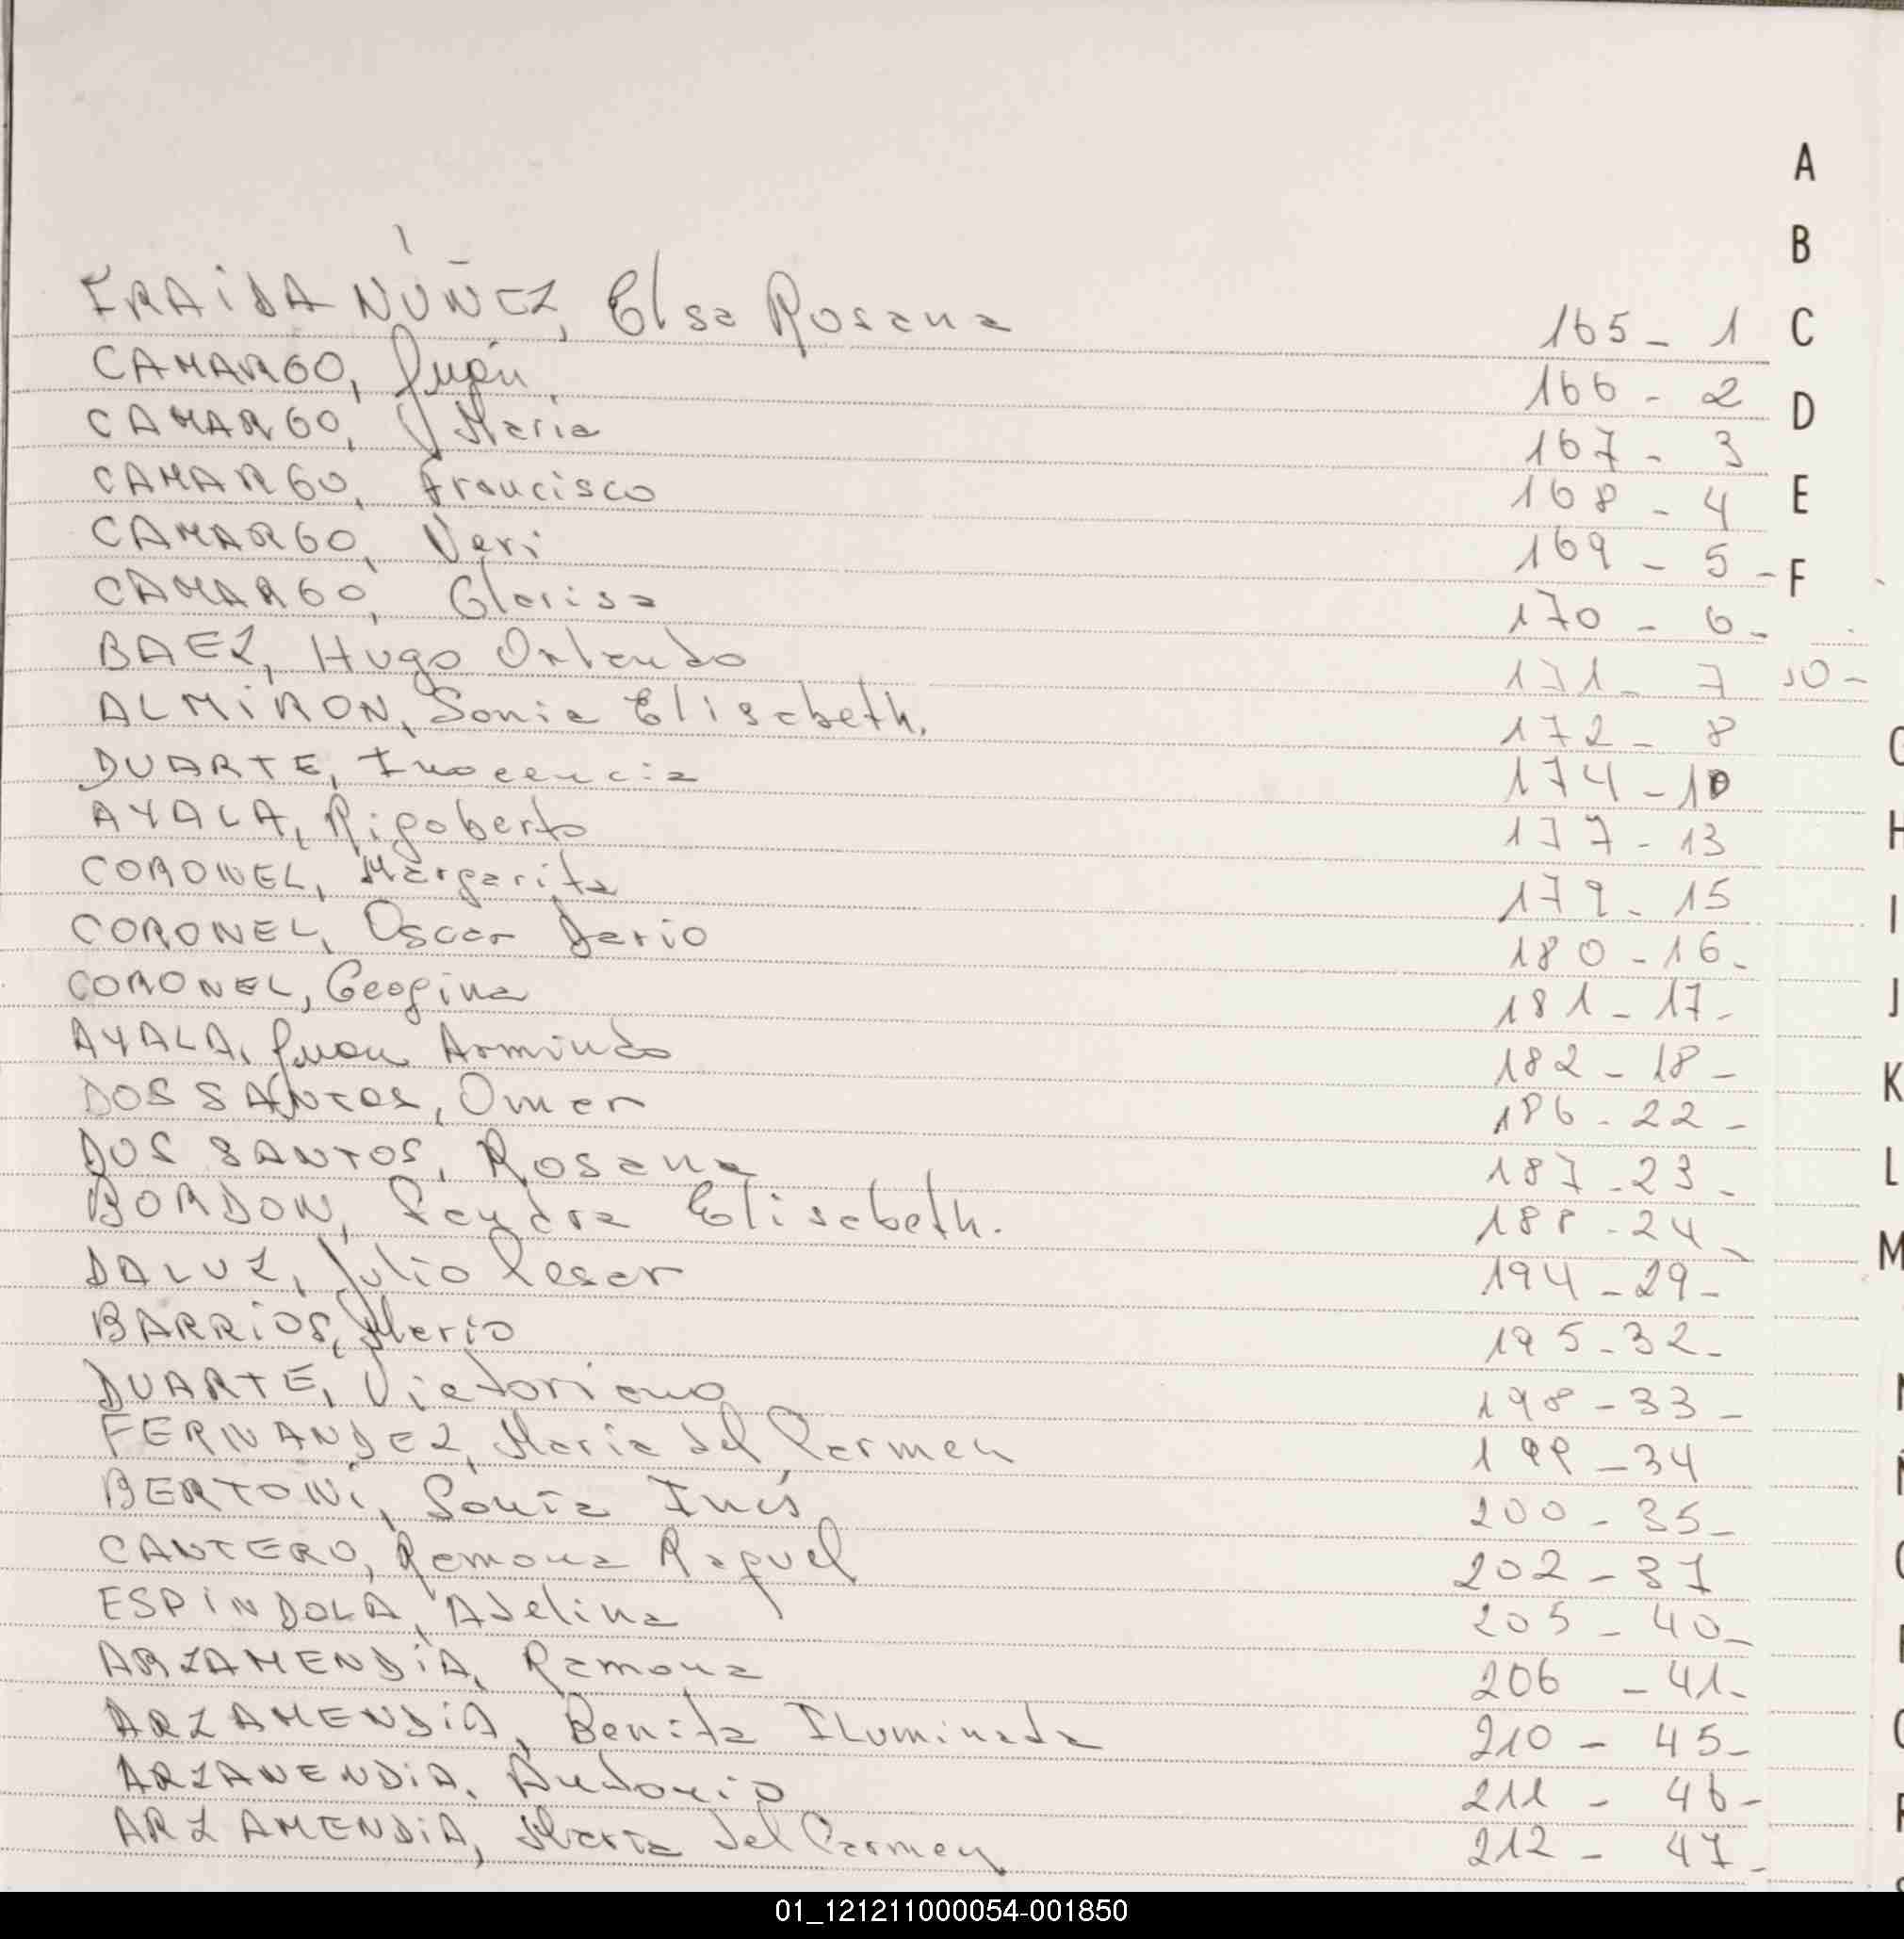 A
B
FRAIDA NÚÑEZ, Elsa Rosana 165 - 1 C
CAMARGO, Juan 166 - 2 D
CAMARGO, María 167 - 3
CAMARGO, Francisco 168 - 4 E
CAMARGO, Neri 169 - 5 - F
CAMARGO, Clarisa 170 - 6 -
BAEZ, Hugo Orlando 171 - 7 10 -
ALMIRON, Sonia Elisabeth. 172 - 8
DUARTE, Inocencia 174 - 10
AYALA, Rigoberto 177 - 13 H
CORONEL, Margarita 179 - 15 I
CORONEL, Oscar Dario 180 - 16 -
CORONEL, Geogina 181 - 17 - J
AYALA, Juan Armindo 182 - 18 - K
DOS SANTOS, Omar 186 - 22 -
DOS SANTOS, Rosana 187 - 23 - L
BORDON, Sandra Elisabeth. 188 - 24 - M
DALUZ, Julio Cesar 194 - 29 -
BARRIOS, Mario 195 - 32 -
DUARTE, Victoriano 198 - 33 -
FERNANDEZ, Maria del Carmen 199 - 34
BERTONI, Sonia Inés 200 - 35 -
CANTERO, Ramona Raquel 202 - 37
ESPINDOLA, Adelina 205 - 40 -
ARZAMENDIA, Ramona 206 - 41 -
ARZAMENDIA, Benita Iluminada 210 - 45 -
ARZAMENDIA, Antonio 211 - 46 -
ARZAMENDIA, Maria del Carmen 212 - 47 -
01_121211000054-001850